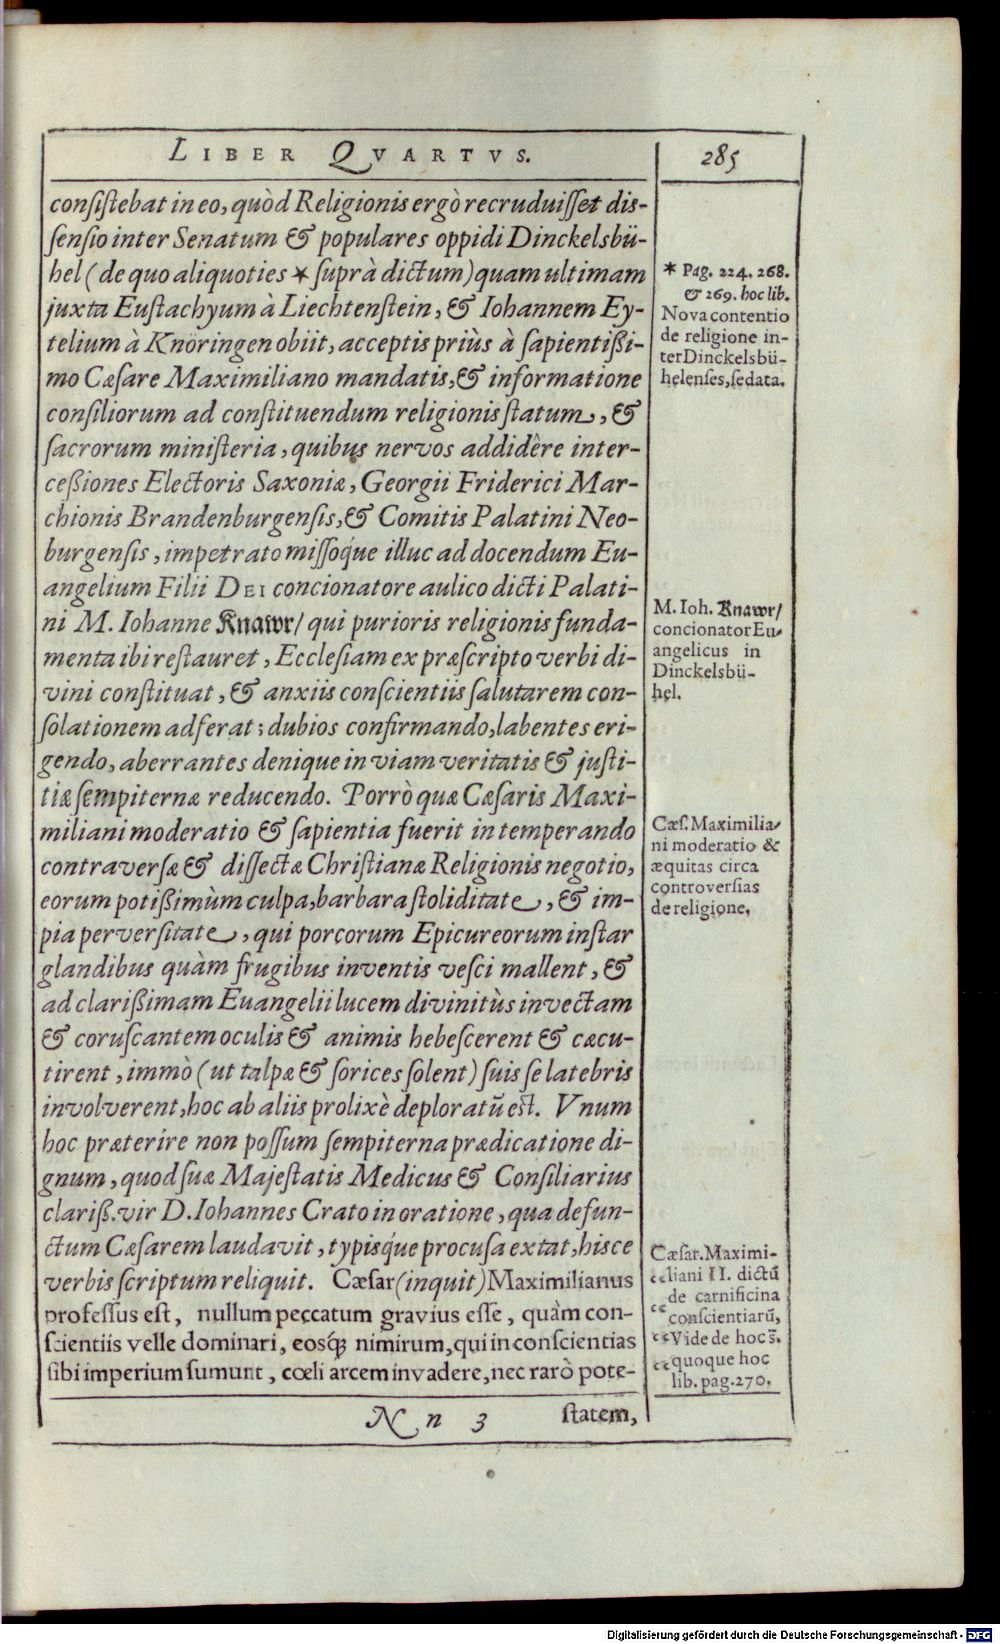 LIBER QVARTVS.
285
consistebat in eo, quòd Religionis ergò recruduisset dis-
sensio inter Senatum & populares oppidi Dinckelsbü-
hel (de quo aliquoties * suprà dictum) quam ultimam
juxta Eustachyum à Liechtenstein, & Iohannem Ey-
telium à Knöringen obiit, acceptis priùs à sapientißi-
mo Cæsare Maximiliano mandatis, & informatione
consiliorum ad constituendum religionis statum, &
sacrorum ministeria, quibus nervos addidêre inter-
ceßiones Electoris Saxoniæ, Georgii Friderici Mar-
chionis Brandenburgensis, & Comitis Palatini Neo-
burgensis, impetrato missoq́ue illuc ad docendum Eu-
angelium Filii DEI concionatore aulico dicti Palati-
ni M. Iohanne Knawr/ qui purioris religionis funda-
menta ibi restauret, Ecclesiam ex præscripto verbi di-
vini constituat, & anxiis conscientiis salutarem con-
solationem adferat; dubios confirmando, labentes eri-
gendo, aberrantes denique in viam veritatis & justi-
tiæ sempiternæ reducendo. Porrò quæ Cæsaris Maxi-
miliani moderatio & sapientia fuerit in temperando
contraversæ & dissectæ Christianæ Religionis negotio,
eorum potißimùm culpa, barbara stoliditate, & im-
pia perversitate, qui porcorum Epicureorum instar
glandibus quàm frugibus inventis vesci mallent, &
ad clarißimam Euangelii lucem divinitùs invectam
& coruscantem oculis & animis hebescerent & cæcu-
tirent, immò (ut talpæ & sorices solent) suis se latebris
involverent, hoc ab aliis prolixè deploratū est. Vnum
hoc præterire non possum sempiterna prædicatione di-
gnum, quod suæ Majestatis Medicus & Consiliarius
clariß. vir D. Iohannes Crato in oratione, qua defun-
ctum Cæsarem laudavit, typisq́ue procusa extat, hisce
verbis scriptum reliquit. Cæsar (inquit) Maximilianus
professus est, nullum peccatum gravius esse, quàm con-
scientiis velle dominari, eosq́; nimirum, qui in conscientias
sibi imperium sumunt, cœli arcem invadere, nec rarò pote-
N n 3 statem,
* Pag. 224. 268.
& 269. hoc lib.
Nova contentio
de religione in-
ter Dinckelsbü-
helenses, sedata.
M. Ioh. Knawr/
concionator Eu-
angelicus in
Dinckelsbü-
hel.
Cæs. Maximilia-
ni moderatio &
æquitas circa
controversias
de religione.
Cæsar. Maximi-
liani II. dictū
de carnificina
conscientiarū,
Vide de hoc s̄.
quoque hoc
lib. pag. 270.
Digitalisierung gefördert durch die Deutsche Forschungsgemeinschaft - DFG